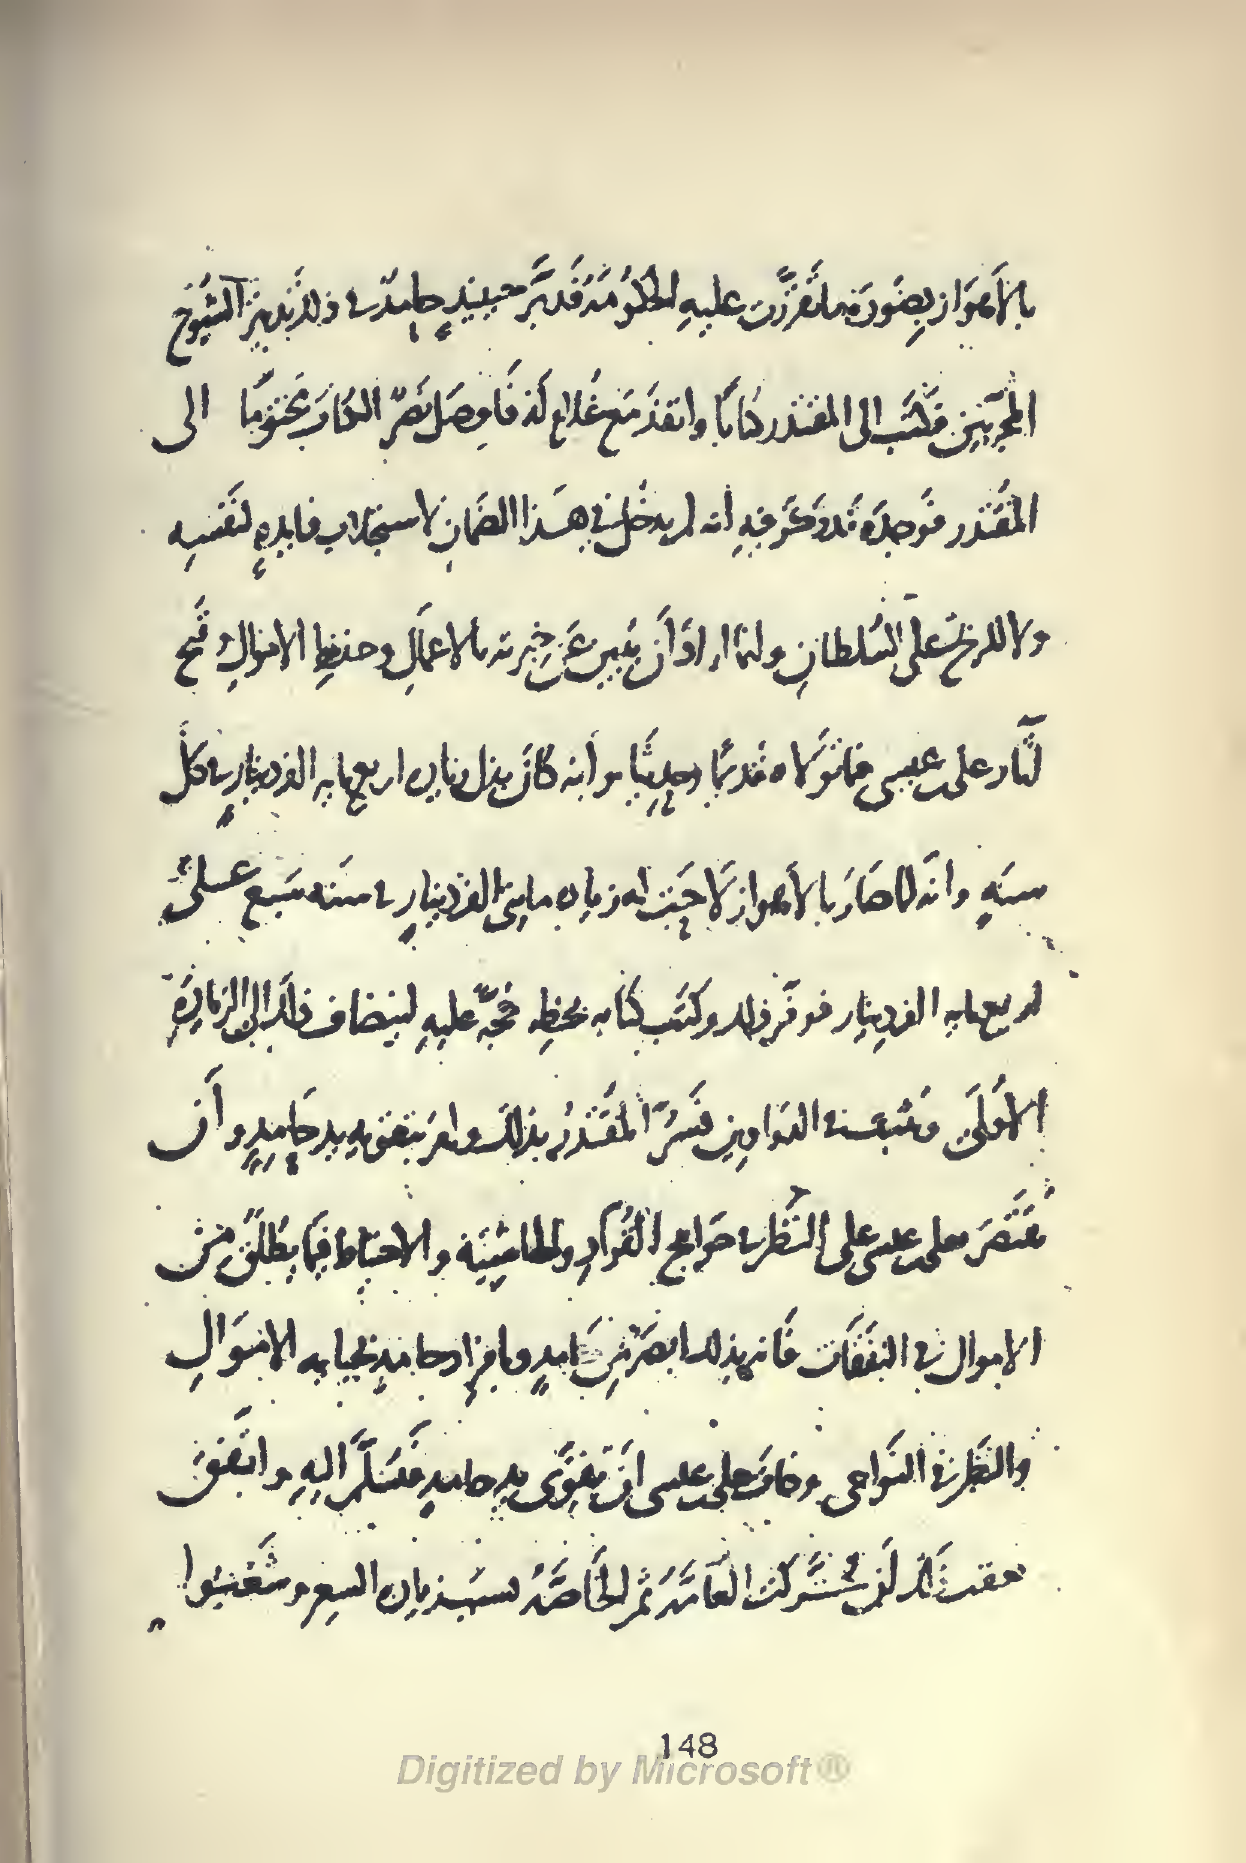 بالأهواز بصورة ما تقرّرت عليه الحكومة فدبّر حينئذٍ حامدٌ في ذلك تدبير الشيوخ
المجرّبين فكتب الى المقتدر كتابًا وانفذ مع غلامٍ له فاوصل نصرٌ الكتاب مختومًا الى
المقتدر فوجده قد ذكر فيه أنه لم يدخل في هذا الضمان لاستجلاب فايدةٍ لنفسه
ولا للربح على السلطان وانما اراد أن يبين عن خبرته بالاعمال وحفظ الاموال وقبح
آثار علي بن عيسى فيما تولاه قديمًا وحديثًا وأنه كان بذل زيادة اربع مايه الف دينارٍ في كل
سنةٍ وأنه لما صار بالأهواز لاحت له زيادة مايتي الف دينارٍ في سنة سبع على
اربع مايه الف دينار فوفّر ذلك وكتب كتابه بخطه حجّة عليه لينضاف ذلك الى الزيادة
الأولى وتثبت في الدواوين فسرّ المقتدر بذلك وامر بتقوية يد حامدٍ وأن
يقتصر بعلي بن عيسى على النظر في حوايج القواد والحاشية والاحتياط فيما يطلق من
الاموال في النفقات فانه بذلك ابصر من حامدٍ وافراد حامدٍ بجباية الاموال
والنظر في النواحي وخاف علي بن عيسى ان تقوى يد حامدٍ فسلّم اليه واتفق
عقب ذلك أن تحركت العامة ثم الخاصة بسبب زيادة السعر وشغبوا
148
Digitized by Microsoft®